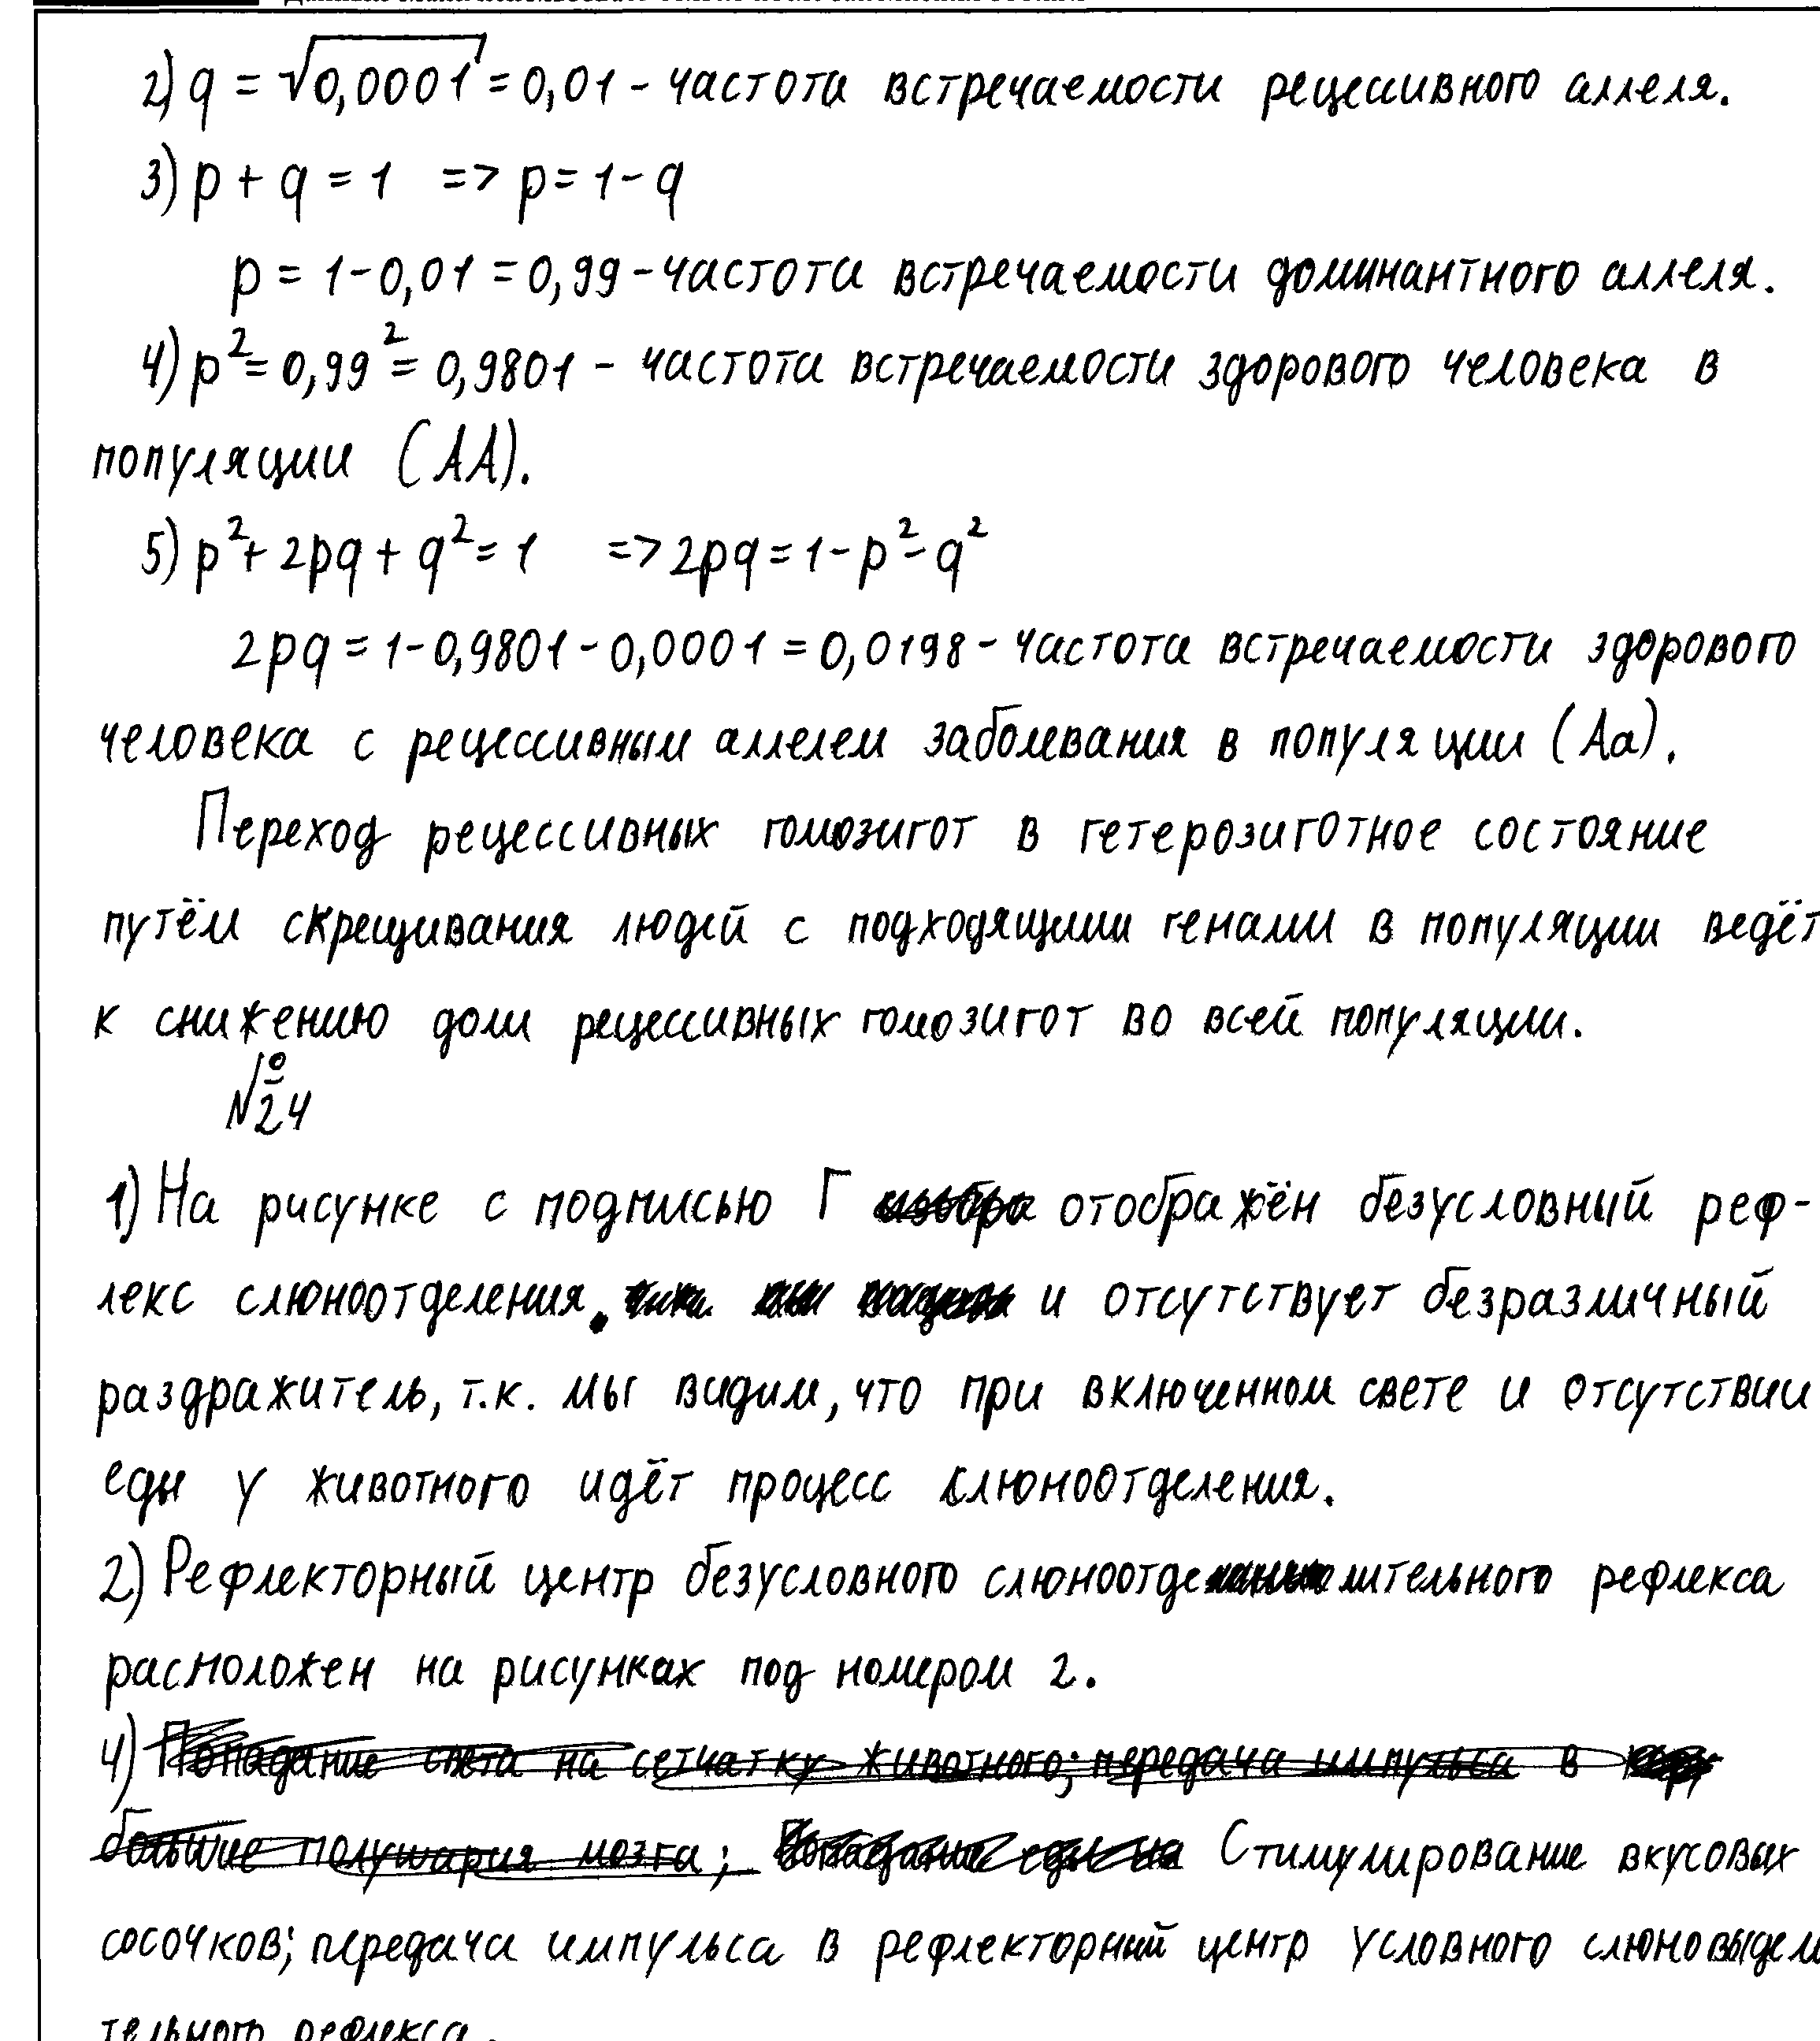 2) q = √0,0001 = 0,01 - частота встречаемости рецессивного аллеля.
3) p + q = 1 => p = 1 - q
p = 1 - 0,01 = 0,99 - частота встречаемости доминантного аллеля.
4) p² = 0,99² = 0,9801 - частота встречаемости здорового человека в
популяции (АА).
5) p² + 2pq + q² = 1 => 2pq = 1 - p² - q²
2pq = 1 - 0,9801 - 0,0001 = 0,0198 - частота встречаемости здорового
человека с рецессивным аллелем заболевания в популяции (Аа).
Переход рецессивных гомозигот в гетерозиготное состояние
путём скрещивания людей с подходящими генами в популяции ведёт
к снижению доли рецессивных гомозигот во всей популяции.
№24
1) На рисунке с подписью Г отображён безусловный реф-
лекс слюноотделения. и отсутствует безразличный
раздражитель, т.к. мы видим, что при включенном свете и отсутствии
еды у животного идёт процесс слюноотделения.
2) Рефлекторный центр безусловного слюноотделительного рефлекса
расположен на рисунках под номером 2.
4) Попадание света на сетчатку животного; передача импульса в
большие полушария мозга; Стимулирование вкусовых
сосочков; передача импульса в рефлекторный центр условного слюновыдели
тельного рефлекса.